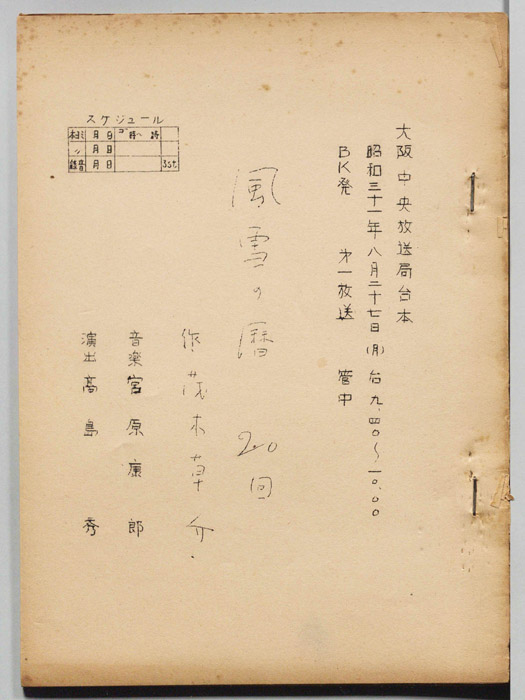 大阪中央放送局台本
昭和三十一年八月二十七日(月) 后九.四〇〜一〇.〇〇
BK発 第一放送 管中
風雪の暦 20回
作 茂木草介.
音楽 宮原康郎
演出 高島 秀
スケジュール
本ヨミ 月 日 ゴ 時〜 時
〃 月 日
録音 月 日 3st.